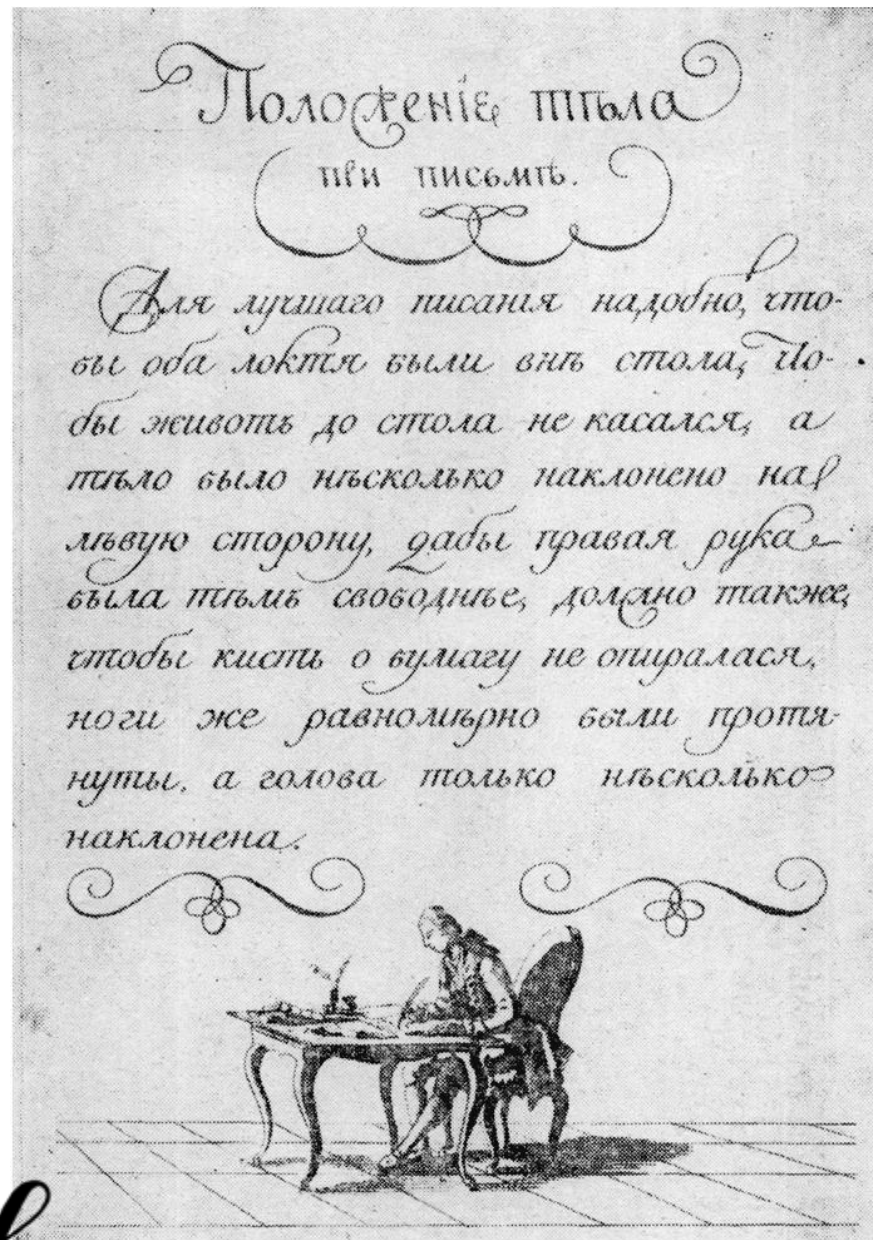 Положеніе тѣла
при письмѣ.
Для лучшаго писанія надобно, что-
бы оба локтя были внѣ стола, Чо-
бы животъ до стола не касался, а
тѣло было нѣсколько наклонено на
лѣвую сторону, дабы правая рука
была тѣмъ свободнѣе, должно также,
чтобы кисть о бумагу не опиралася,
ноги же равномѣрно были протя-
нуты, а голова только нѣсколько
наклонена.